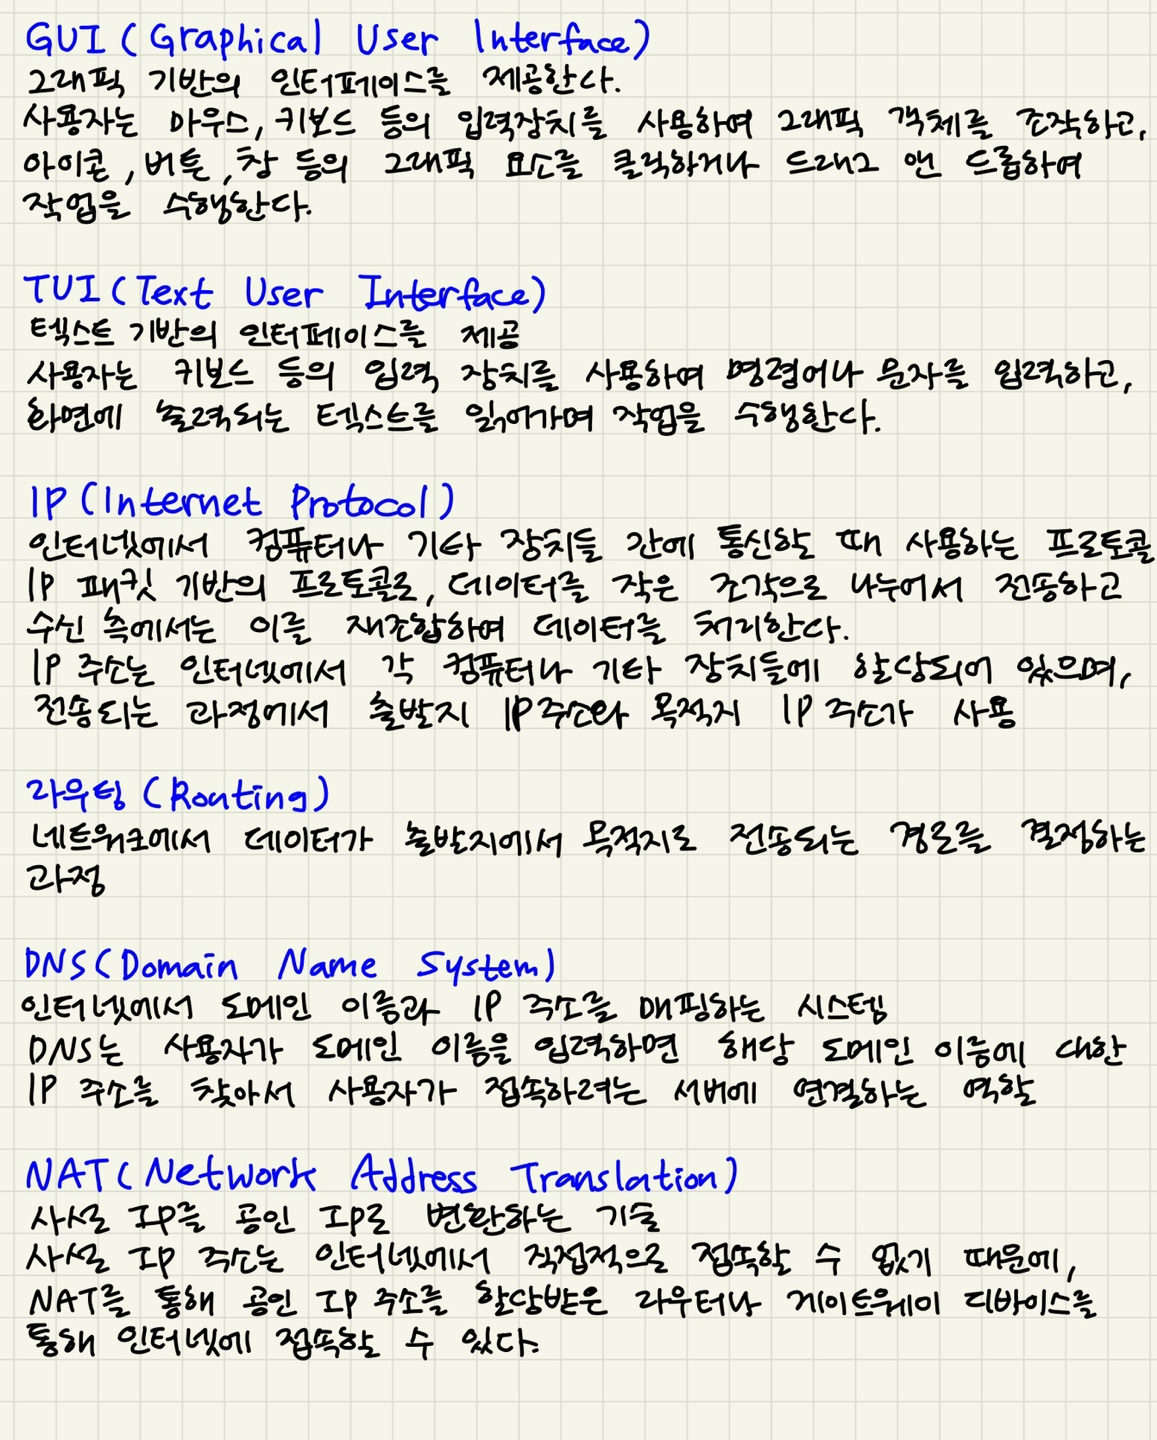 GUI (Graphical User Interface)
그래픽 기반의 인터페이스를 제공한다.
사용자는 마우스, 키보드 등의 입력장치를 사용하여 그래픽 객체를 조작하고,
아이콘, 버튼, 창 등의 그래픽 요소를 클릭하거나 드래그 앤 드롭하여
작업을 수행한다.
TUI (Text User Interface)
텍스트 기반의 인터페이스를 제공
사용자는 키보드 등의 입력 장치를 사용하여 명령어나 문자를 입력하고,
화면에 출력되는 텍스트를 읽어가며 작업을 수행한다.
IP (Internet Protocol)
인터넷에서 컴퓨터나 기타 장치들 간에 통신할 때 사용하는 프로토콜
IP 패킷 기반의 프로토콜로, 데이터를 작은 조각으로 나누어서 전송하고
수신 측에서는 이를 재조합하여 데이터를 처리한다.
IP 주소는 인터넷에서 각 컴퓨터나 기타 장치들에 할당되어 있으며,
전송되는 과정에서 출발지 IP 주소와 목적지 IP 주소가 사용
라우팅 (Routing)
네트워크에서 데이터가 출발지에서 목적지로 전송되는 경로를 결정하는
과정
DNS (Domain Name System)
인터넷에서 도메인 이름과 IP 주소를 매핑하는 시스템
DNS는 사용자가 도메인 이름을 입력하면 해당 도메인 이름에 대한
IP 주소를 찾아서 사용자가 접속하려는 서버에 연결하는 역할
NAT (Network Address Translation)
사설 IP를 공인 IP로 변환하는 기술
사설 IP 주소는 인터넷에서 직접적으로 접속할 수 없기 때문에,
NAT를 통해 공인 IP 주소를 할당받은 라우터나 게이트웨이 디바이스를
통해 인터넷에 접속할 수 있다.